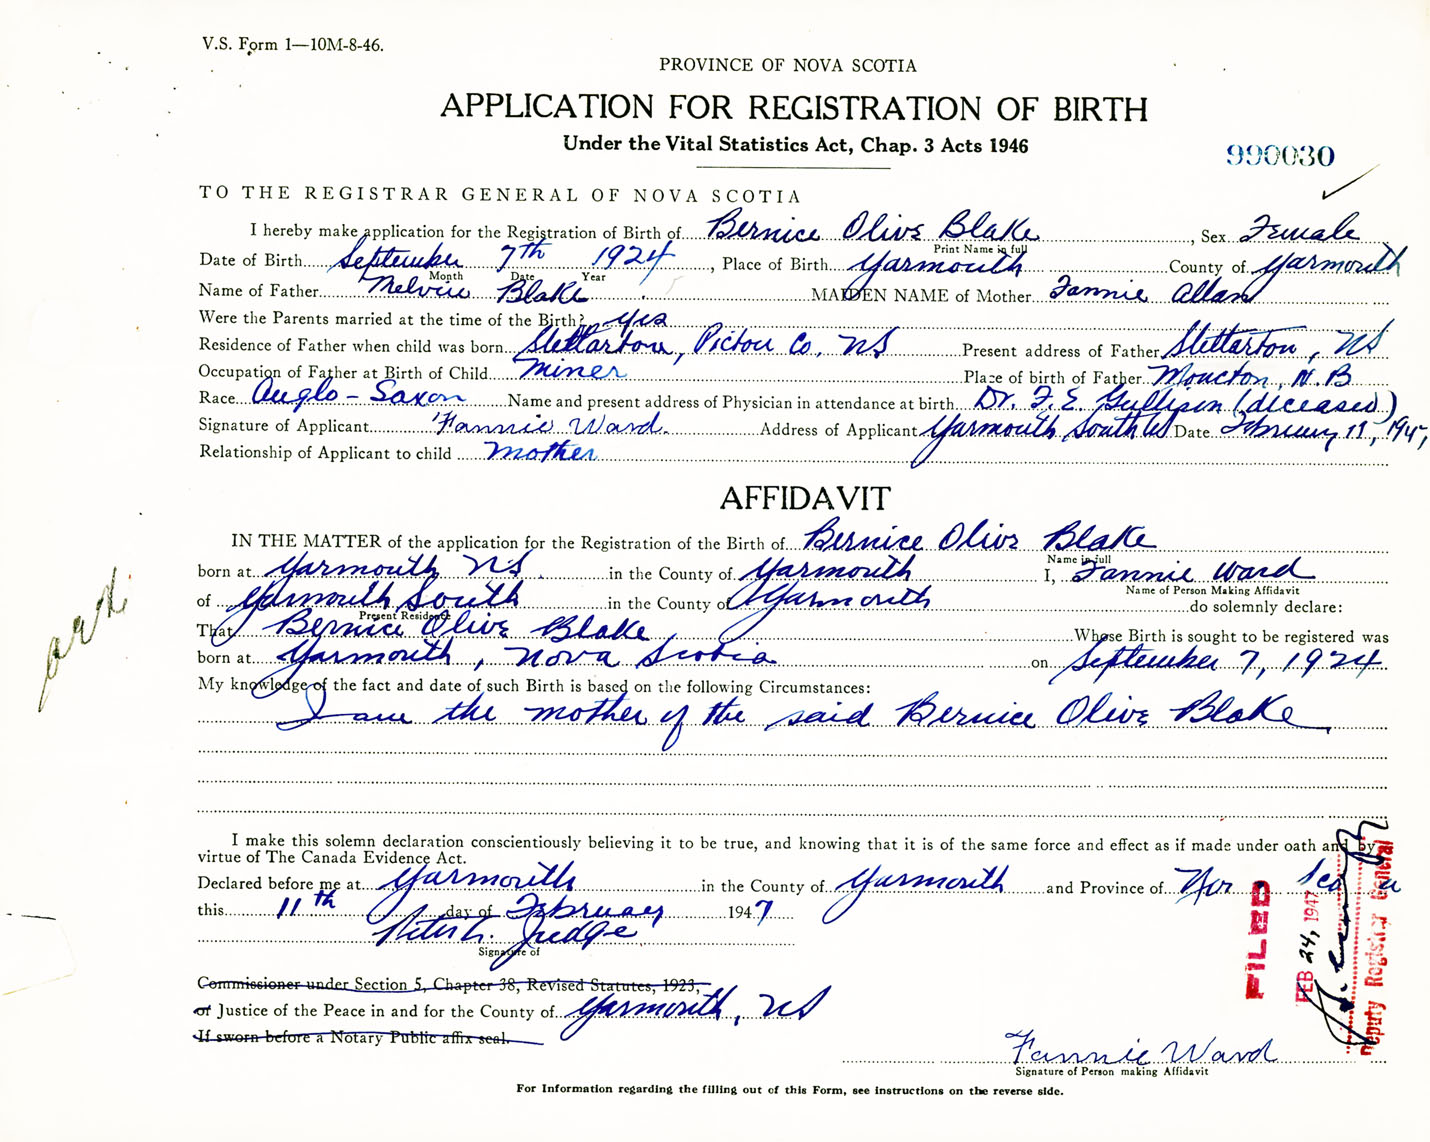 V.S. Form 1—10M-8-46.
PROVINCE OF NOVA SCOTIA
APPLICATION FOR REGISTRATION OF BIRTH
Under the Vital Statistics Act, Chap. 3 Acts 1946
990030
TO THE REGISTRAR GENERAL OF NOVA SCOTIA
I hereby make application for the Registration of Birth of Bernice Olive Blake, Sex Female
Print Name in full
Date of Birth September 7th 1924, Place of Birth Yarmouth County of Yarmouth
Month Date Year
Name of Father Melvin Blake MAIDEN NAME of Mother Fannie Allan
Were the Parents married at the time of the Birth? yes
Residence of Father when child was born Stellarton, Pictou Co, NS Present address of Father Stellarton, NS
Occupation of Father at Birth of Child miner Place of birth of Father Moncton, N.B
Race Anglo-Saxon Name and present address of Physician in attendance at birth Dr. F.E. Gullison (deceased)
Signature of Applicant Fannie Ward. Address of Applicant Yarmouth South Date February 11, 1947,
Relationship of Applicant to child mother
AFFIDAVIT
IN THE MATTER of the application for the Registration of the Birth of Bernice Olive Blake
Name in full
born at Yarmouth NS. in the County of Yarmouth I, Fannie Ward
Name of Person Making Affidavit
of Yarmouth South in the County of Yarmouth do solemnly declare:
Present Residence
That Bernice Olive Blake, Whose Birth is sought to be registered was
born at Yarmouth, Nova Scotia on September 7, 1924
My knowledge of the fact and date of such Birth is based on the following Circumstances:
I am the mother of the said Bernice Olive Blake
I make this solemn declaration conscientiously believing it to be true, and knowing that it is of the same force and effect as if made under oath and by
virtue of The Canada Evidence Act.
Declared before me at Yarmouth in the County of Yarmouth and Province of Nova Scotia
this 11th day of February 1947
Judge
Signature of
Commissioner under Section 5, Chapter 38, Revised Statutes, 1923,
or Justice of the Peace in and for the County of Yarmouth, NS
If sworn before a Notary Public affix seal.
FILED
FEB 24, 1947
Deputy Registrar General
Fannie Ward
Signature of Person making Affidavit
For Information regarding the filling out of this Form, see instructions on the reverse side.